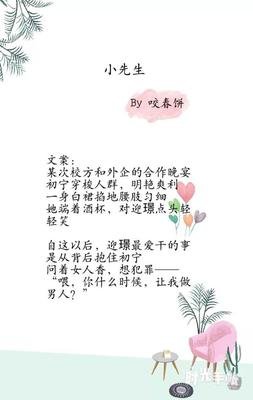 小先生
By 咬春饼
文案：
某次校方和外企的合作晚宴
初宁穿梭人群，明艳爽利
一身白裙掐地腰肢匀细
她端着酒杯，对迎璟点头轻
轻笑
自这以后，迎璟最爱干的事
是从背后抱住初宁
闻着女人香，想犯罪——
“喂，你什么时候，让我做
男人？”